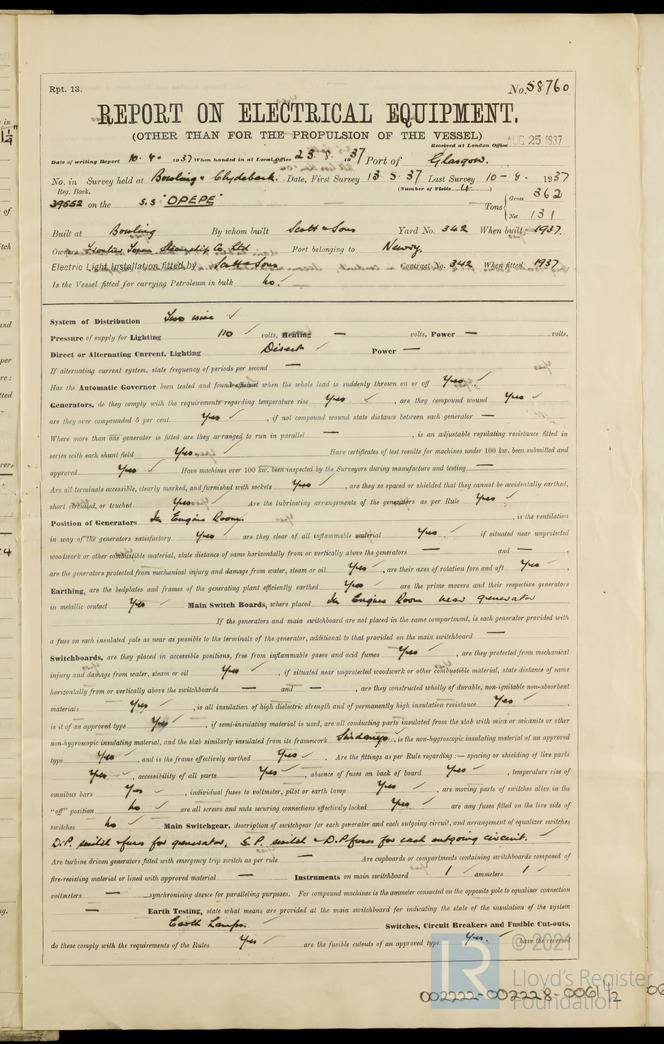 Rpt. 13.
No. 58760
REPORT ON ELECTRICAL EQUIPMENT.
(OTHER THAN FOR THE PROPULSION OF THE VESSEL)
Received at London Office AUG 25 1937
Date of writing Report 10. 8. 1937 When handed in at Local Office 23. 8. 1937 Port of Glasgow.
No. in Survey held at Bowling & Clydebank. Date, First Survey 13. 5. 37 Last Survey 10 - 8 - 1937
Reg. Book. (Number of Visits 4.)
39552 on the S.S "OPEPE" Tons { Gross 362
Net 131
Built at Bowling By whom built Scott & Sons Yard No. 342 When built 1937
Owners Steamship Co. Ltd Port belonging to Newry.
Electric Light Installation fitted by Scott & Sons Contract No. 342 When fitted 1937
Is the Vessel fitted for carrying Petroleum in bulk No.
System of Distribution Two wire ✓
Pressure of supply for Lighting 110 ✓ volts, Heating — volts, Power — volts.
Direct or Alternating Current, Lighting Direct ✓ Power —
If alternating current system, state frequency of periods per second —
Has the Automatic Governor been tested and found efficient when the whole load is suddenly thrown on or off Yes ✓
Generators, do they comply with the requirements regarding temperature rise Yes ✓, are they compound wound Yes ✓
are they over compounded 5 per cent. Yes ✓, if not compound wound state distance between each generator —
Where more than one generator is fitted are they arranged to run in parallel —, is an adjustable regulating resistance fitted in
series with each shunt field Yes ✓ Have certificates of test results for machines under 100 kw. been submitted and
approved Yes ✓ Have machines over 100 kw. been inspected by the Surveyors during manufacture and testing —
Are all terminals accessible, clearly marked, and furnished with sockets Yes ✓, are they so spaced or shielded that they cannot be accidentally earthed,
short circuited, or touched Yes ✓ Are the lubricating arrangements of the generators as per Rule Yes ✓
Position of Generators In Engine Room, is the ventilation
in way of the generators satisfactory Yes ✓ are they clear of all inflammable material Yes ✓ if situated near unprotected
woodwork or other combustible material, state distance of same horizontally from or vertically above the generators — and —,
are the generators protected from mechanical injury and damage from water, steam or oil Yes ✓, are their axes of rotation fore and aft Yes ✓.
Earthing, are the bedplates and frames of the generating plant efficiently earthed Yes ✓ are the prime movers and their respective generators
in metallic contact Yes ✓ Main Switch Boards, where placed In Engine Room near generator
If the generators and main switchboard are not placed in the same compartment, is each generator provided with
a fuse on each insulated pole as near as possible to the terminals of the generator, additional to that provided on the main switchboard —
Switchboards, are they placed in accessible positions, free from inflammable gases and acid fumes Yes ✓, are they protected from mechanical
injury and damage from water, steam or oil Yes ✓, if situated near unprotected woodwork or other combustible material, state distance of same
horizontally from or vertically above the switchboards — and —, are they constructed wholly of durable, non-ignitable non-absorbent
materials Yes ✓, is all insulation of high dielectric strength and of permanently high insulation resistance Yes ✓,
is it of an approved type Yes ✓, if semi-insulating material is used, are all conducting parts insulated from the slab with mica or micanite or other
non-hygroscopic insulating material, and the slab similarly insulated from its framework Sindanyo ✓, is the non-hygroscopic insulating material of an approved
type Yes ✓, and is the frame effectively earthed Yes ✓. Are the fittings as per Rule regarding :— spacing or shielding of live parts
Yes ✓, accessibility of all parts Yes ✓, absence of fuses on back of board Yes ✓, temperature rise of
omnibus bars Yes ✓, individual fuses to voltmeter, pilot or earth lamp Yes ✓, are moving parts of switches alive in the
"off" position No ✓ are all screws and nuts securing connections effectively locked Yes ✓ are any fuses fitted on the live side of
switches No ✓ Main Switchgear, description of switchgear for each generator and each outgoing circuit, and arrangement of equalizer switches
D.P. switch & fuses for generator, S.P. switch & D.P. fuses for each outgoing circuit. ✓
Are turbine driven generators fitted with emergency trip switch as per rule — Are cupboards or compartments containing switchboards composed of
fire-resisting material or lined with approved material — Instruments on main switchboard 1 ✓ ammeters 1 ✓
voltmeters — synchronising device for paralleling purposes. For compound machines is the ammeter connected on the opposite pole to equaliser connection
— Earth Testing, state what means are provided at the main switchboard for indicating the state of the insulation of the system
Earth Lamps. Switches, Circuit Breakers and Fusible Cut-outs,
do these comply with the requirements of the Rules Yes ✓ are the fusible cutouts of an approved type Yes. have the reversed
© 2021
Lloyd's Register
Foundation
002222-002228-0061 1/2